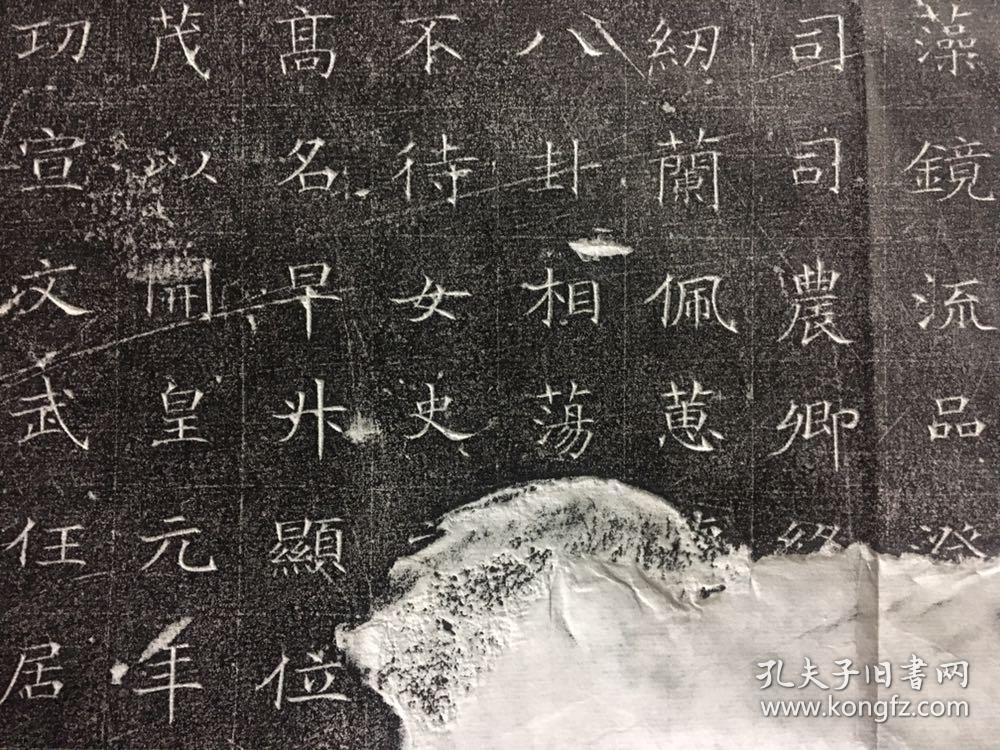 藻鏡流品澄
司司農卿終
紉蘭佩蕙
八卦相蕩
不待女史
高名早升顯位
茂以開皇元年
功宣文武任居
孔夫子旧書网
www.kongfz.com